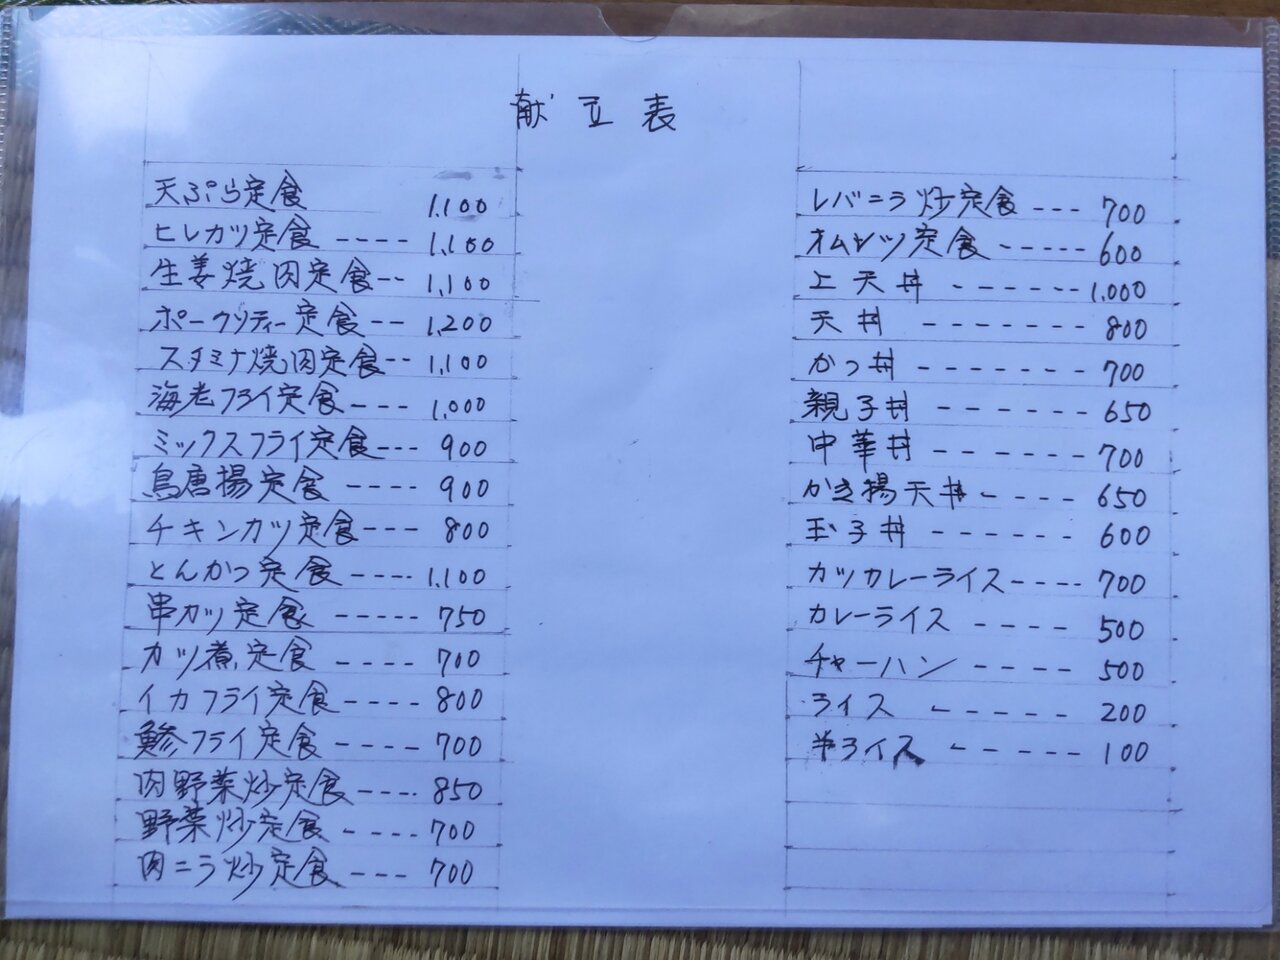 献立表
天ぷら定食 1,100
ヒレカツ定食 ---- 1,100
生姜焼肉定食-- 1,100
ポークソティー定食 -- 1,200
スタミナ焼肉定食-- 1,100
海老フライ定食 --- 1,000
ミックスフライ定食--- 900
鳥唐揚定食 ---- 900
チキンカツ定食--- 800
とんかつ定食 ---- 1,100
串カツ定食 ----- 750
カツ煮定食 ---- 700
イカフライ定食---- 800
鯵フライ定食 ---- 700
肉野菜炒定食---- 850
野菜炒定食 ---- 700
肉ニラ炒定食 --- 700
レバニラ炒定食 --- 700
オムレツ定食 ----- 600
上天丼 ------ 1,000
天丼 ------- 800
かつ丼 ------- 700
親子丼 ------ 650
中華丼 ------ 700
かき揚天丼 ---- 650
玉子丼 ------ 600
カツカレーライス---- 700
カレーライス ---- 500
チャーハン ----- 500
ライス ------ 200
半ライス ------ 100